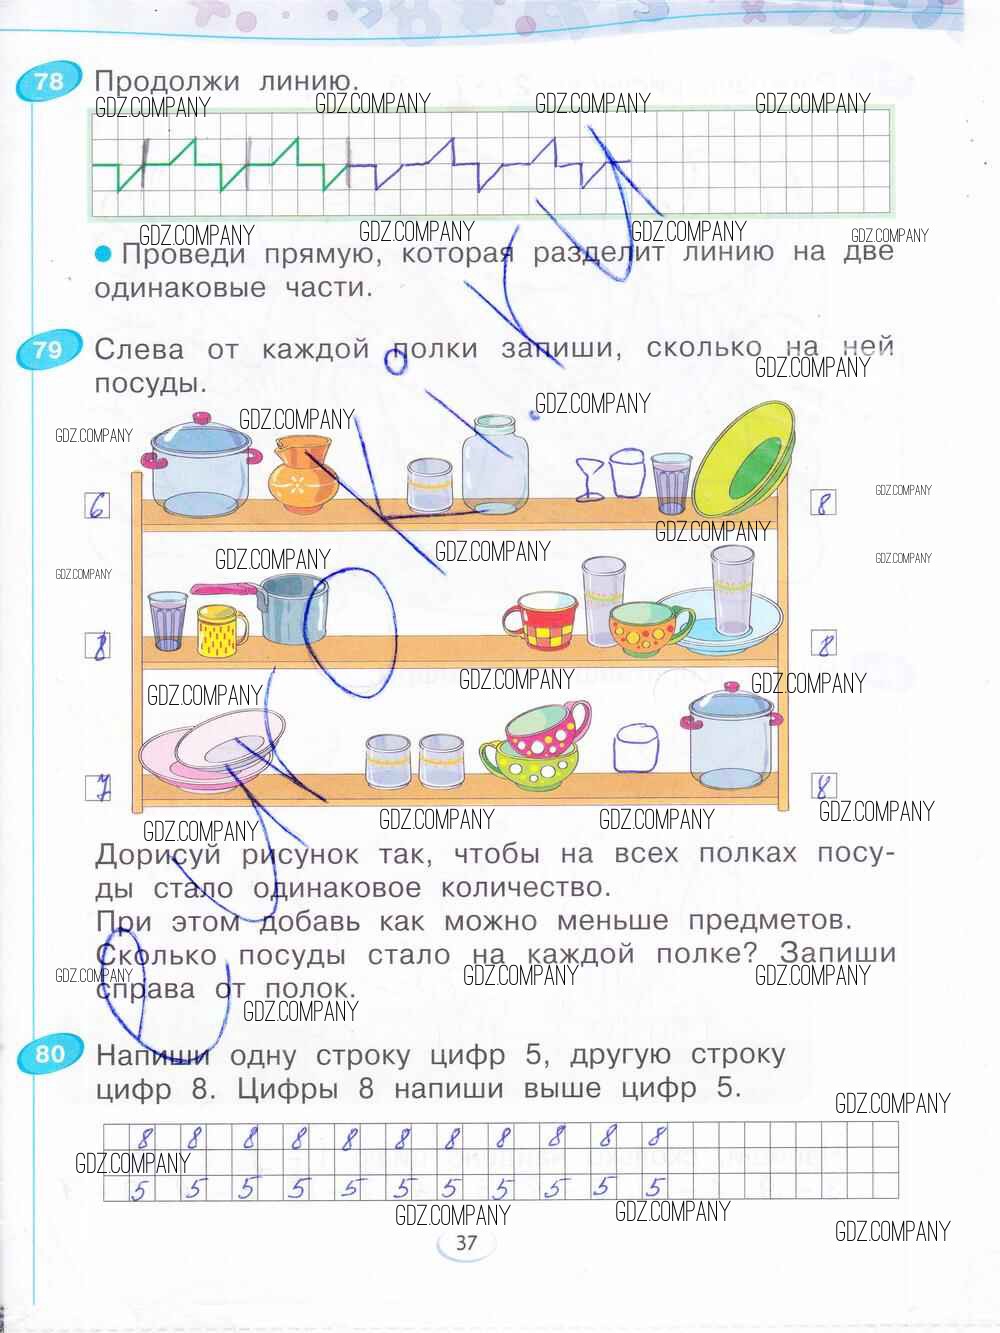 78 Продолжи линию.
GDZ.COMPANY GDZ.COMPANY GDZ.COMPANY GDZ.COMPANY
GDZ.COMPANY GDZ.COMPANY GDZ.COMPANY GDZ.COMPANY
Проведи прямую, которая разделит линию на две
одинаковые части.
79 Слева от каждой полки запиши, сколько на ней
GDZ.COMPANY
посуды.
GDZ.COMPANY GDZ.COMPANY GDZ.COMPANY
6 8 GDZ.COMPANY
GDZ.COMPANY
GDZ.COMPANY GDZ.COMPANY GDZ.COMPANY
GDZ.COMPANY
8 8
GDZ.COMPANY GDZ.COMPANY GDZ.COMPANY
7 8
GDZ.COMPANY GDZ.COMPANY GDZ.COMPANY GDZ.COMPANY
Дорисуй рисунок так, чтобы на всех полках посу-
ды стало одинаковое количество.
При этом добавь как можно меньше предметов.
Сколько посуды стало на каждой полке? Запиши
GDZ.COMPANY GDZ.COMPANY GDZ.COMPANY
справа от полок.
GDZ.COMPANY
80 Напиши одну строку цифр 5, другую строку
цифр 8. Цифры 8 напиши выше цифр 5.
GDZ.COMPANY
8 8 8 8 8 8 8 8 8 8 8
GDZ.COMPANY
5 5 5 5 5 5 5 5 5 5 5
GDZ.COMPANY GDZ.COMPANY GDZ.COMPANY
37